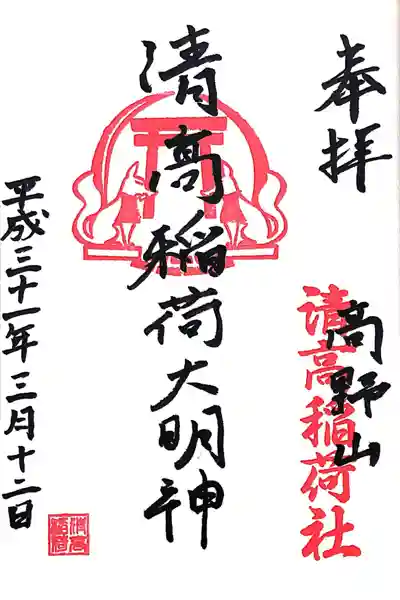 奉拝
高野山
清高稲荷社
清高稲荷大明神
平成三十一年三月十二日
清高稲荷